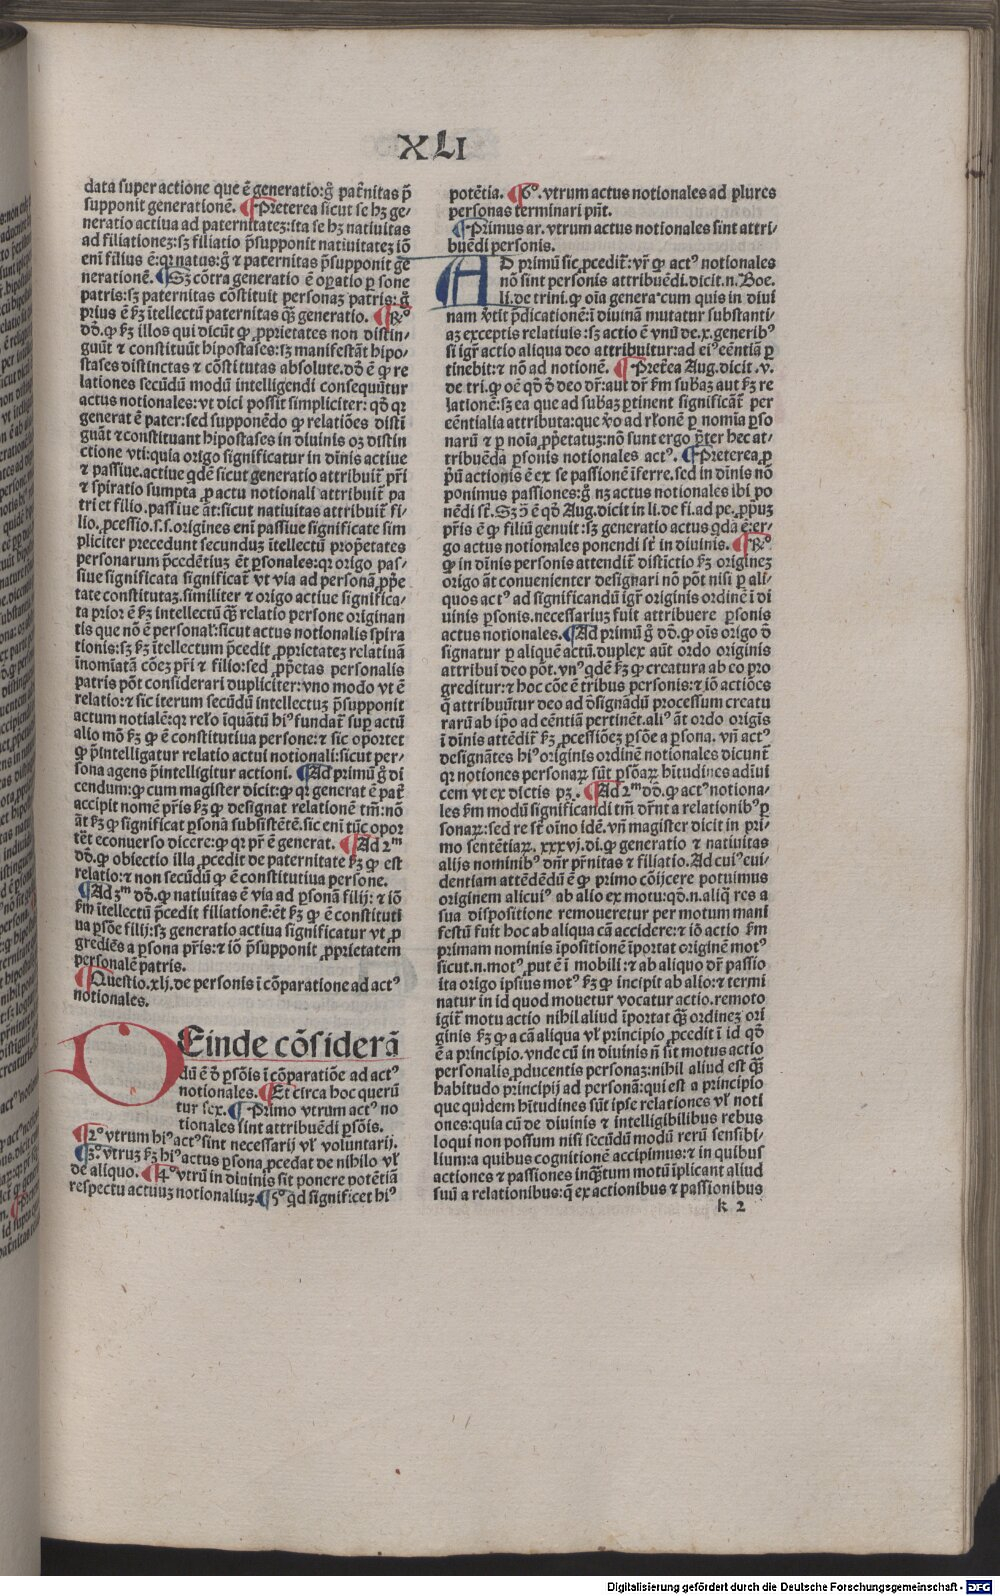 XLI
data super actione que ē generatio:g̃ pat̃nitas p̄
supponit generationē. ¶Preterea sicut se hꝫ ge-
neratio actiua ad paternitatez:ita se hꝫ natiuitas
ad filiationez:sꝫ filiatio p̄supponit natiuitatez iō
eni filius ē:qꝛ natus:g̃ ⁊ paternitas p̄supponit ge
nerationē.¶Sꝫ cōtra generatio ē oꝑatio ꝑsone
patris:sꝫ paternitas cōstituit personaz patris:g̃
prius ē ẜꝫ ītellectū paternitas qꝫ̄ generatio. ¶R̄o
dō.ꝙ ẜꝫ illos qui dicūt ꝙ ꝓprietates non distin-
guūt ⁊ constituūt hipostases:sꝫ manifestāt hipo-
stases distinctas ⁊ cōstitutas absolute.dō ē ꝙ re
lationes secūdū modū intelligendi consequūtur
actus notionales:vt dici possit simpliciter: qō qꝛ
generat ē pater:sed supponēdo ꝙ relatiōes disti
guāt ⁊ constituant hipostases in diuinis oꝫ distin
ctione vti:quia origo significatur in dīnis actiue
⁊ passiue.actiue qdē sicut generatio attribuit̃ pr̄i
⁊ spiratio sumpta ꝓ actu notionali attribuit̃ pa
tri et filio.passiue āt:sicut natiuitas attribuit̃ fi-
lio.ꝓcessio.s.s.origines eni passiue significate sim
pliciter precedunt secunduz ītellectū prop̄etates
personarum p̄cedētiuz ēt ꝑsonales:qꝛ origo pas-
siue significata significat̃ vt via ad personā ꝓp̄e
tate constitutaz.similiter ⁊ origo actiue significa-
ta prior ē ẜꝫ intellectū qꝫ̄ relatio persone originan
tis que nō ē personal̃:sicut actus notionalis spira
tionis:sꝫ ẜꝫ ītellectum p̄cedit ꝓprietatez relatiuā
īnomīatā cōez pr̄i ⁊ filio:sed ꝓp̄etas personalis
patris pōt considerari dupliciter:vno modo vt ē
relatio:⁊ sic iterum secūdū intellectuz p̄supponit
actum notialē:qꝛ rel̃o īquātū hiꝰ fundat̃ sup actū
alio mō ẜꝫ ꝙ ē constitutiua persone:⁊ sic oportet
ꝙ p̄intelligatur relatio actui notionali:sicut per-
sona agens p̄intelligitur actioni. ¶Ad primū g̃ di
cendum:ꝙ cum magister dicit:ꝙ qꝛ generat ē pat̃
accipit nomē pr̄is ẜꝫ ꝙ designat relationē tm̄:nō
āt ẜꝫ ꝙ significat ꝑsonā subsistētē.sic eni tūc opor
tet econuerso dicere:ꝙ qꝛ pr̄ ē generat. ¶Ad 2ᵐ
dō.ꝙ obiectio illa ꝓcedit de paternitate ẜꝫ ꝙ est
relatio:⁊ non secūdū ꝙ ē constitutiua persone.
¶Ad 3ᵐ dō.ꝙ natiuitas ē via ad ꝑsonā filij: ⁊ iō
ẜm ītellectū p̄cedit filiationē:ēt ẜꝫ ꝙ ē constituti
ua ꝑsōe filij:sꝫ generatio actiua significatur vt ꝓ
grediēs a ꝑsona pr̄is:⁊ iō p̄supponit ꝓprietatem
personalē patris.
¶Questio.xlij.de personis ī cōparatione ad actꝰ
notionales.
DEinde cōsiderā
dū ē ð ꝑsōis ī cōparatiōe ad actꝰ
notionales. ¶Et circa hoc querū
tur sex. ¶Primo vtrum actꝰ no
tionales sint attribuēdi ꝑsōis.
¶2ꝰ vtrum hiꝰ actꝰ sint necessarij vl̃ voluntarij.
¶3ꝰ vtruz ẜꝫ hiꝰ actus ꝑsona ꝓcedat de nihilo vl̃
de aliquo. ¶4ꝰ vtrū in diuinis sit ponere potētiā
respectu actuuz notionaliuz.¶5ꝰ qd significet hiꝰ
potētia. ¶6ꝰ. vtrum actus notionales ad plures
personas terminari pn̄t.
¶Primus ar. vtrum actus notionales sint attri-
buēdi personis.
AD primū sic ꝓcedit̃: vr̄ ꝙ actꝰ notionales
nō sint personis attribuēdi.dicit.n. Boe.
li.de trini.ꝙ oīa genera cum quis in diui
nam v̄tit p̄dicationē:ī diuinā mutatur substanti-
az exceptis relatiuis:sꝫ actio ē vnū de.x.generibꝰ
si igr̄ actio aliqua deo attribuitur:ad eiꝰ eēntiā ꝑ
tinebit:⁊ nō ad notionē. ¶Pret̃ea Aug.dicit .v.
de tri.ꝙ oē qō ð deo dr̄:aut dr̄ ẜm subaz aut ẜꝫ re
lationē:sꝫ ea que ad subaz ꝑtinent significāt̃ per
eēntialia attributa:que v̄o ad rl̄onē ꝑ nomīa ꝑso
narū ⁊ ꝑ noīa ꝓp̄etatuz:nō sunt ergo p̄ter hec at-
tribuēda ꝑsonis notionales actꝰ. ¶Preterea ꝓ
p̄ū actionis ē ex se passionē īferre.sed in dīnis nō
ponimus passiones:g̃ nꝫ actus notionales ibi po
nēdi st̄. Sꝫ ꝯ̄ ē qō Aug.dicit in li.de fi.ad pe.ꝓpuꝫ
pr̄is ē ꝙ filiū genuit:sꝫ generatio actus qdā ē:er-
go actus notionales ponendi st̄ in diuinis. ¶R̄o
ꝙ in dīnis personis attendit̃ distīctio ẜꝫ originez
origo āt conuenienter designari nō pōt nisi ꝑ ali-
quos actꝰ ad significandū igr̄ originis ordinē ī di
uinis ꝑsonis.necessariuz fuit attribuere ꝑsonis
actus notionales.¶Ad primū g̃ dō.ꝙ oīs origo ð
signatur ꝑ aliquē actū.duplex aūt ordo originis
attribui deo pōt.vnꝰ qdē ẜꝫ ꝙ creatura ab eo pro
greditur:⁊ hoc cōe ē tribus personis:⁊ iō actiōes
q̄ attribuūtur deo ad ð̄signādū processum creatu
rarū ab ip̄o ad eēntiā pertinēt.aliꝰ āt ordo origīs
ī dīnis attēdit̃ ẜꝫ ꝓcessiōez ꝑsōe a ꝑsona. vn̄ actꝰ
designātes hiꝰ originis ordinē notionales dicunt̃
qꝛ notiones personaꝝ sūt ꝑsōaꝝ hītudines adīui
cem vt ex dictis pꝫ. ¶Ad 2ᵐ dō.ꝙ actꝰ notiona-
les ẜm modū significandi tm̄ dr̄nt a relationibꝰ ꝑ
sonaꝝ:sed re st̄ oīno idē.vn̄ magister dicit in pri-
mo sentētiaꝝ. xxxvj.di.ꝙ generatio ⁊ natiuitas
alijs nominibꝰ dn̄r pr̄nitas ⁊ filiatio.Ad cuiꝰ eui-
dentiam attēdēdū ē ꝙ primo cōijcere potuimus
originem alicuiꝰ ab alio ex motu:qō.n.aliq̄ res a
sua dispositione remoueretur per motum mani
festū fuit hoc ab aliqua cā accidere:⁊ iō actio ẜm
primam nominis īpositionē īportat originē motꝰ
sicut.n.motꝰ ꝓut ē ī mobili:⁊ ab aliquo dr̄ passio
ita origo ipsius motꝰ ẜꝫ ꝙ incipit ab alio:⁊ termi
natur in id quod mouetur vocatur actio.remoto
igit̃ motu actio nihil aliud īportat qꝫ̄ ordinez ori
ginis ẜꝫ ꝙ a cā aliqua vl̃ principio ꝓcedit ī id qō
ē a principio.vnde cū in diuinis n̄ sit motus actio
personalis ꝓducentis personaz:nihil aliud est qꝫ̄
habitudo principij ad personā:qui est a principio
que quidem hītudines sūt ipse relationes vl̃ noti
ones:quia cū de diuinis ⁊ intelligibilibus rebus
loqui non possum nisi secūdū modū rerū sensibi-
lium:a quibus cognitionē accipimus:⁊ in quibus
actiones ⁊ passiones inqꝫ̄tum motū iplicant aliud
suū a relationibus:q̄ ex actionibus ⁊ passionibus
k 2
Digitalisierung gefördert durch die Deutsche Forschungsgemeinschaft - DFG